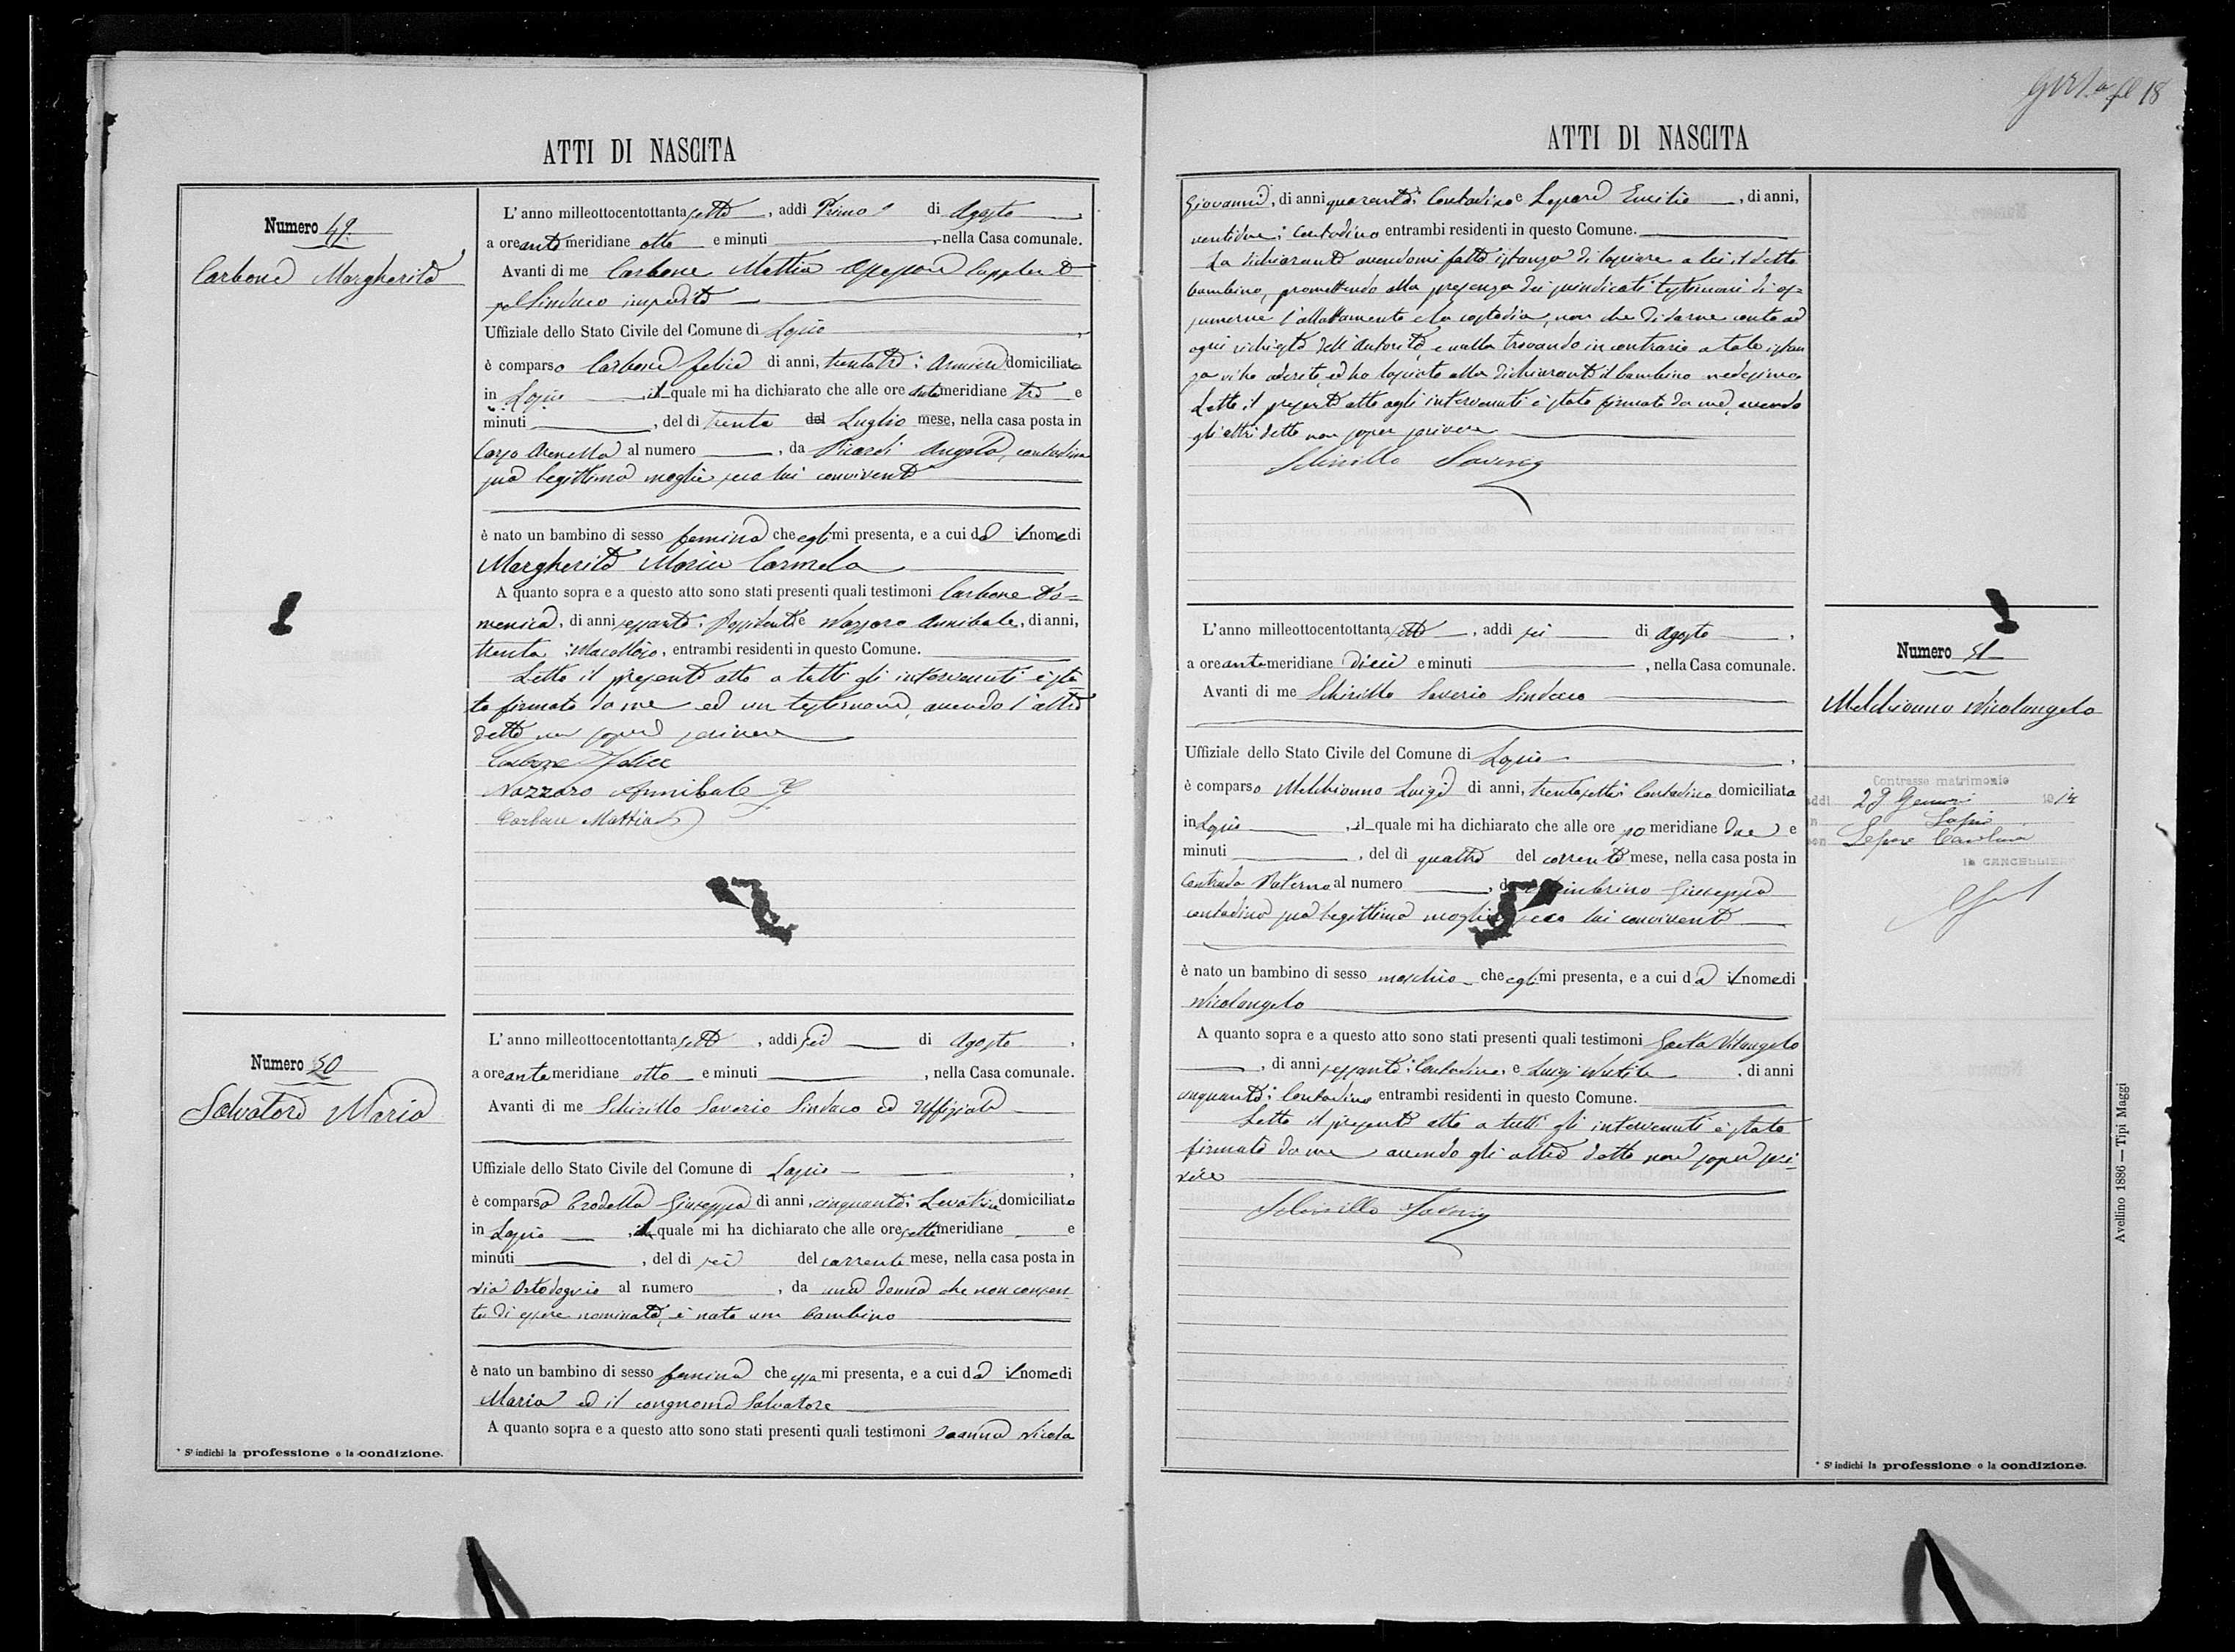 ATTI DI NASCITA
Numero 49.
Carbone Margherita
L'anno milleottocentottantasette, addi Primo di Agosto,
a ore ante meridiane otto e minuti, nella Casa comunale.
Avanti di me Carbone Mattia Assessore Supplente
pel Sindaco impedito
Uffiziale dello Stato Civile del Comune di Lapio,
è comparso Carbone Felice di anni, trentatre; domiciliato
in Lapio il quale mi ha dichiarato che alle ore ante meridiane tre e
minuti, del di trenta del Luglio mese, nella casa posta in
Largo Arenella al numero, da Picardi Angela, contadina
sua legittima moglie seco lui convivente
è nato un bambino di sesso femina che egli mi presenta, e a cui da il nome di
Margherita Maria Carmela
A quanto sopra e a questo atto sono stati presenti quali testimoni Carbone Do=
menico, di anni sessanta; Possidente e Nazzaro Annibale, di anni,
trenta; Macellaio, entrambi residenti in questo Comune.
Letto il presente atto a tutti gli intervenuti è sta
to firmato da me ed un testimone, avendo l'altro
detto non sapere scrivere
Carbone Felice
Nazzaro Annibale
Carbone Mattia
Numero 50
Salvatore Maria
L'anno milleottocentottantasette, addi sei di Agosto,
a ore ante meridiane otto e minuti, nella Casa comunale.
Avanti di me Schirillo Saverio Sindaco ed Uffiziale
Uffiziale dello Stato Civile del Comune di Lapio,
è comparsa Brodella Giuseppa di anni, cinquanta; Levatrice domiciliata
in Lapio, la quale mi ha dichiarato che alle ore sette meridiane e
minuti, del di sei del corrente mese, nella casa posta in
via al numero, da una donna che non consen-
te di essere nominata, è nato un bambino
è nato un bambino di sesso femina che essa mi presenta, e a cui da il nome di
Maria ed il congnome Salvatore
A quanto sopra e a questo atto sono stati presenti quali testimoni Nicola
* Si indichi la professione o la condizione.
18
ATTI DI NASCITA
Giovanni, di anni quaranta; Contadino e Lepore Emilio, di anni,
ventidue; Contadino entrambi residenti in questo Comune.
La dichiarante avendomi fatto istanza di lasciare a lei il detto
bambino, promettendo alla presenza dei suindicati testimoni di as=
sumerne l'allattamento e la custodia, non che di darne conto ad
ogni richiesta dell'Autorità, e nulla trovando in contrario a tale istan
za vi ho aderito, ed ho lasciato alla dichiarante il bambino medesimo
Letto il presente atto agli intervenuti è stato firmato da me, avendo
gli altri detto non saper scrivere
Schirillo Saverio
L'anno milleottocentottantasette, addi sei di Agosto,
a ore ante meridiane dieci e minuti, nella Casa comunale.
Avanti di me Schirillo Saverio Sindaco
Uffiziale dello Stato Civile del Comune di Lapio,
è comparso Melchionno Luigi di anni, trentasette; Contadino domiciliato
in Lapio, il quale mi ha dichiarato che alle ore po meridiane due e
minuti, del di quattro del corrente mese, nella casa posta in
Contrada Paterno al numero, da Giuseppa
contadina sua legittima moglie seco lui convivente
è nato un bambino di sesso maschio che egli mi presenta, e a cui da il nome di
Nicolangelo
A quanto sopra e a questo atto sono stati presenti quali testimoni Gaeta Vitangelo
, di anni sessanta; Contadino, e Luigi, di anni
cinquanta; Contadino entrambi residenti in questo Comune.
Letto il presente atto a tutti gli intervenuti è stato
firmato da me avendo gli altri detto non saper scri-
vere
Schirillo Saverio
Numero 51
Melchionno Nicolangelo
Contrasse matrimonio
addi 29 Gennaio 1914
in Lapio
con Lepore Carolina
IL CANCELLIERE
Avellino 1886 — Tipi Maggi
* Si indichi la professione o la condizione.